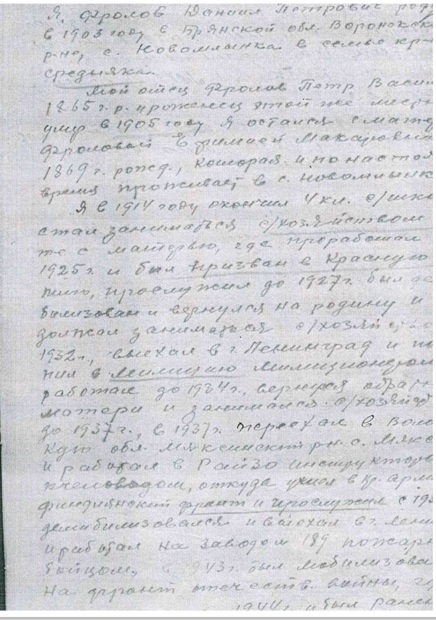 Я, Фролов Даниил Петрович род
в 1903 году в Брянской обл. Воронокс
р-не, с. Новомлынка в семье кр-
средняка.
Мой отец Фролов Петр Васи
1865 г.р. уроженец этой же мест
умер в 1905 году Я остался с мате
Фроловой Ефимией Макаровна
1869 г. рожд., которая и по настоя
время проживает в с. Новомлынк
Я в 1914 году окончил 4 кл. с/шко
стал заниматься с/хозяйством
же с матерью, где проработал
1925 г. и был призван в Красную
мию, прослужил до 1927 г. был де
билизован и вернулся на родину и
должал заниматься с/хозяйство
1932 г., выехал в г. Ленинград и по
пил в милицию милиционером
работал до 1934 г., вернулся обрат
матери и занимался с/хозяйст
до 1937 г., в 1937 г. переехал в Воло
кую обл. Мяксинский р-н с. Мякс
и работал в Райзо инструктор
пчеловодом, откуда ушел в кр. арми
финляндский фронт и прослужил с 19
демобилизовался и выехал в г. Лени
и работал на заводе 189 пожарн
бойцом, в 1943 г. был мобилизован
на фронт отечеств. войны, г
1944 г. и был ранен